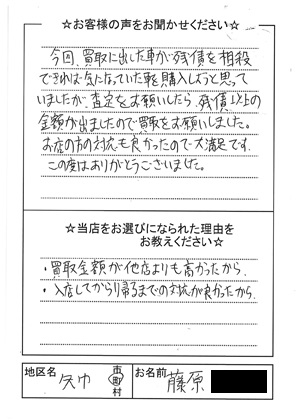 ☆お客様の声をお聞かせください☆
今回、買取に出した車が残債を相殺
できれば気になっていた車を購入しようと思って
いましたが、査定をお願いしたら、残債以上の
金額が出ましたので買取をお願いしました。
お店の方の対応も良かったので大満足です。
この度はありがとうございました。
☆当店をお選びになられた理由を
お教えください☆
・買取金額が他店よりも高かったから。
・入店してから帰るまでの対応が良かったから。
地区名 矢巾 市町村 お名前 藤原